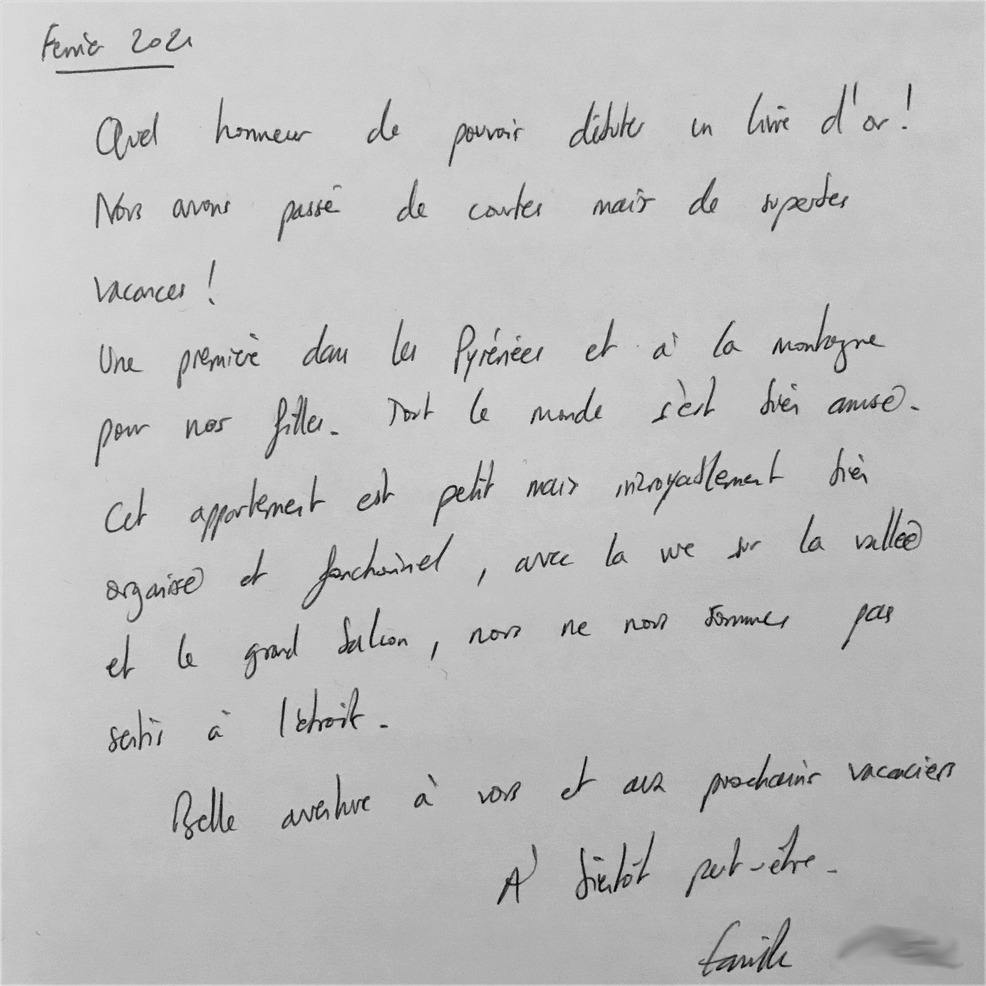 Fevrier 2021
Quel honneur de pouvoir débuter un livre d'or !
Nous avons passé de courtes mais de superbes
vacances !
Une première dans les Pyrénées et à la montagne
pour nos filles. Tout le monde s'est bien amusé.
Cet appartement est petit mais incroyablement bien
organisé et fonctionnel, avec la vue sur la vallée
et le grand balcon, nous ne nous sommes pas
sentis à l'étroit.
Belle aventure à vous et aux prochains vacanciers
A bientôt peut-être.
Famille